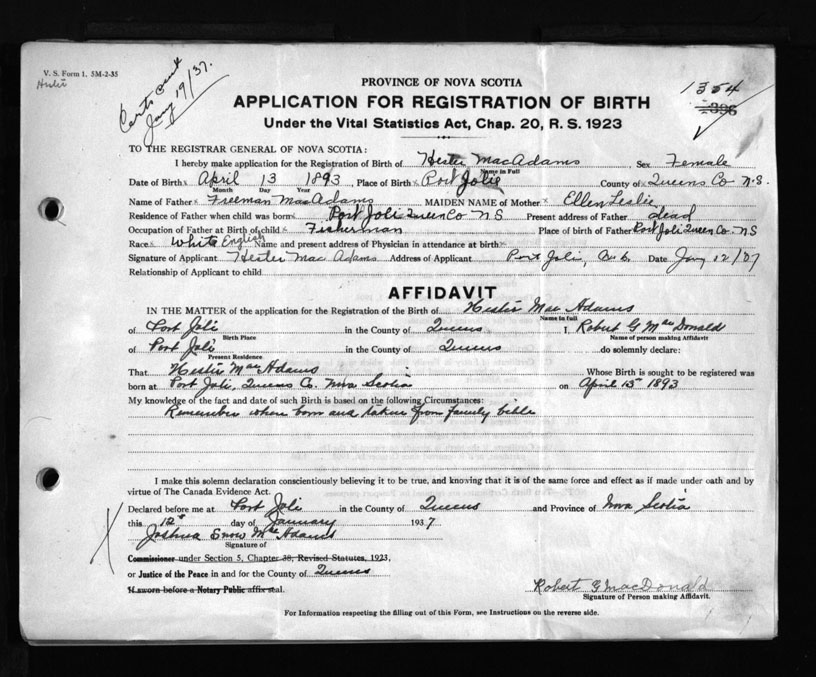 V. S. Form 1, 5M-2-35
Hester
Certs sent
Jany 19/37.
1354
1396
PROVINCE OF NOVA SCOTIA
APPLICATION FOR REGISTRATION OF BIRTH
Under the Vital Statistics Act, Chap. 20, R. S. 1923
TO THE REGISTRAR GENERAL OF NOVA SCOTIA:
I hereby make application for the Registration of Birth of Hester MacAdams Sex Female
Name in Full
Date of Birth April 13 1893, Place of Birth Port Jolie County of Queens Co N.S.
Month Day Year
Name of Father Freeman MacAdams MAIDEN NAME of Mother Ellen Leslie
Residence of Father when child was born Port Joli Queen Co NS Present address of Father dead
Occupation of Father at Birth of child Fisherman Place of birth of Father Port Joli Queen Co NS
Race White English Name and present address of Physician in attendance at birth
Signature of Applicant Hester Mac Adams Address of Applicant Port Joli, Date Jany 12/37
Relationship of Applicant to child
AFFIDAVIT
IN THE MATTER of the application for the Registration of the Birth of Hester Mac Adams
Name in full
of Port Joli in the County of Queens I, Robert G MacDonald
Birth Place Name of person making Affidavit
of Port Joli in the County of Queens do solemnly declare:
Present Residence
That Hester MacAdams Whose Birth is sought to be registered was
born at Port Joli, Queens Co. Nova Scotia on April 13 1893
My knowledge of the fact and date of such Birth is based on the following Circumstances:
Remember when born and taken from family bible
I make this solemn declaration conscientiously believing it to be true, and knowing that it is of the same force and effect as if made under oath and by
virtue of The Canada Evidence Act.
Declared before me at Port Joli in the County of Queens and Province of Nova Scotia
this 12th day of January 1937
Joshua Snow MacAdams
Signature of
Commissioner under Section 5, Chapter 38, Revised Statutes, 1923,
or Justice of the Peace in and for the County of Queens
If sworn before a Notary Public affix seal.
Robert G MacDonald
Signature of Person making Affidavit.
For Information respecting the filling out of this Form, see Instructions on the reverse side.